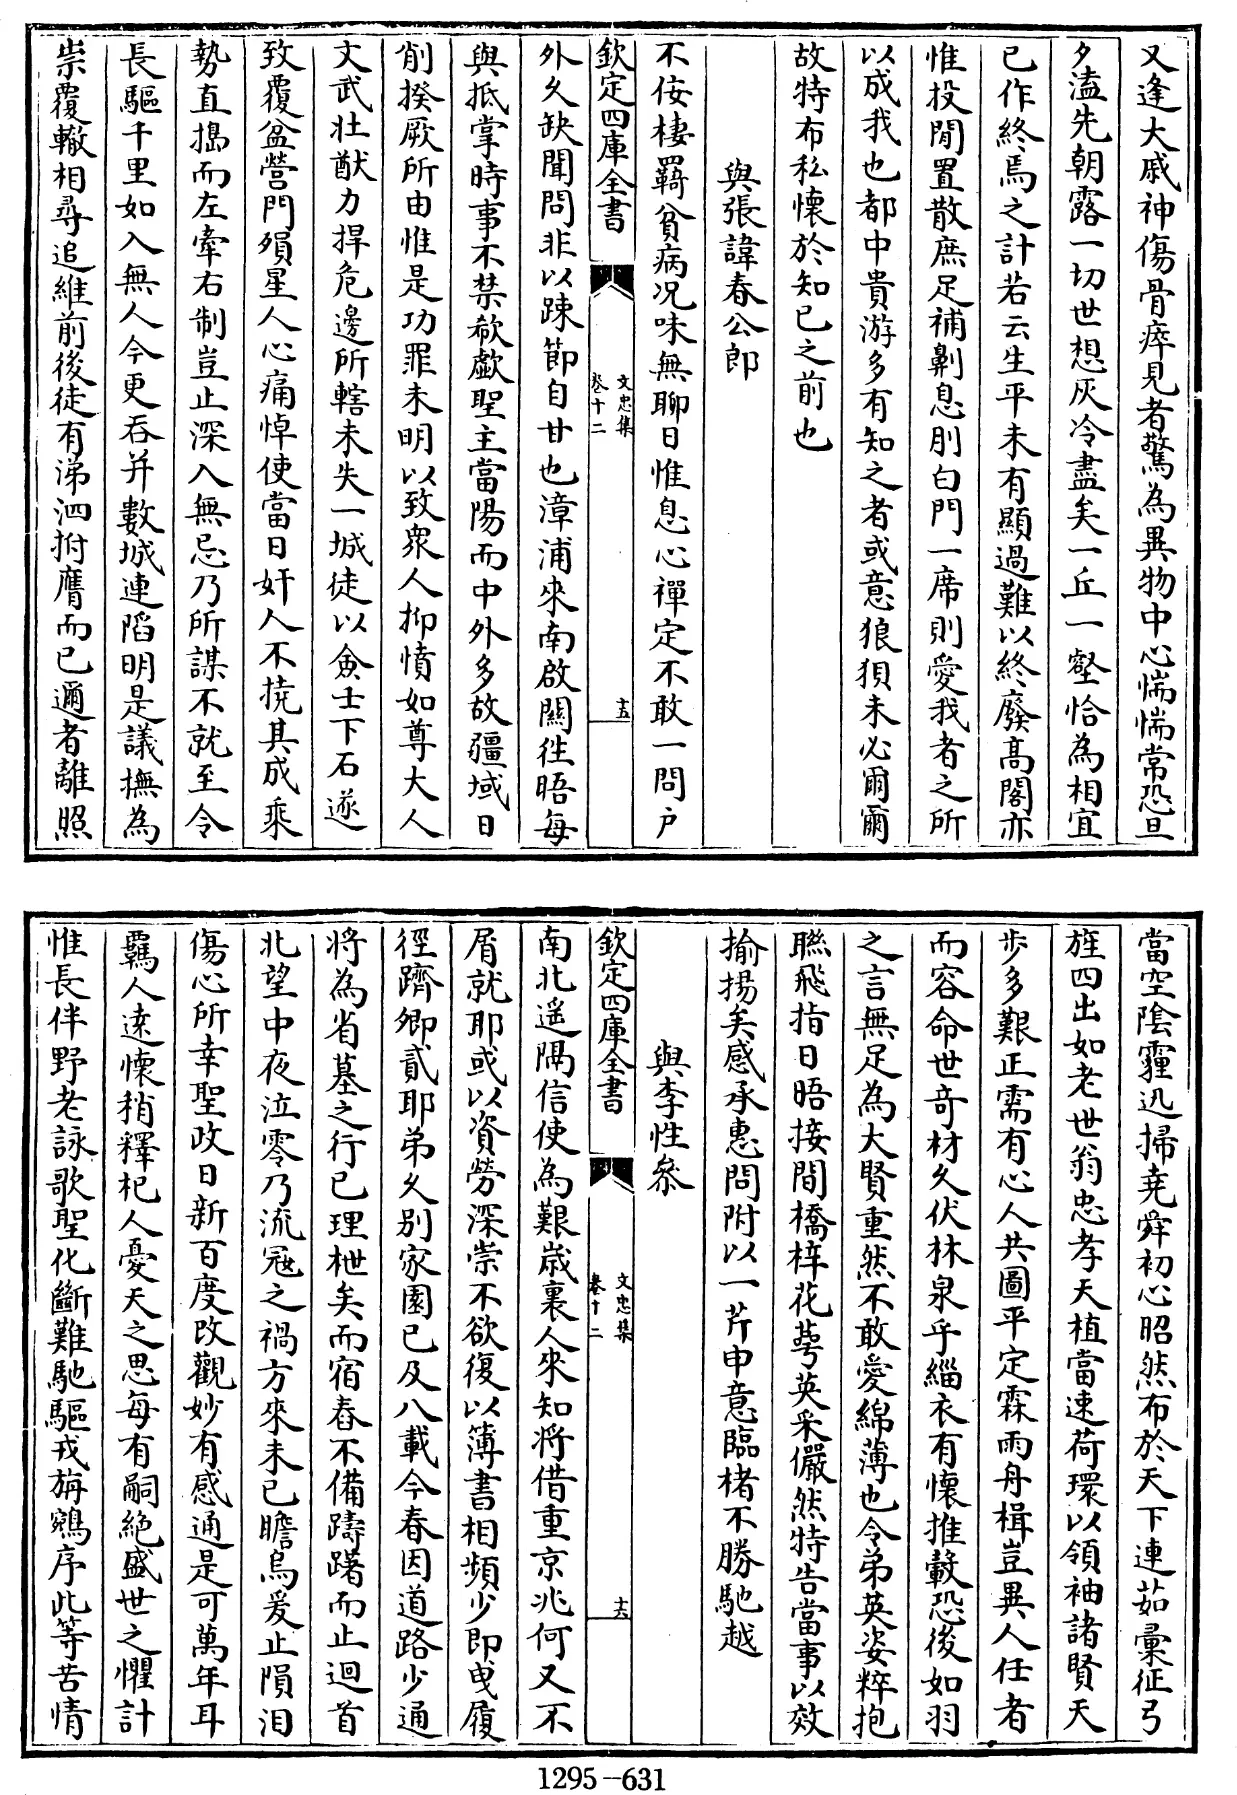 又逢大戚神傷骨瘁見者驚為異物中心惴惴常恐旦
夕溘先朝露一切世想灰冷盡矣一丘一壑恰為相宜
已作終焉之計若云生平未有顯過難以終廢髙閣亦
惟投閒置散庶足補劓息刖白門一席則愛我者之所
以成我也都中貴游多有知之者或意狼狽未必爾爾
故特布私懷於知已之前也
與張諱春公郎
不佞棲羇貧病况味無聊日惟息心禪定不敢一問户
欽定四庫全書
文忠集
卷十二
十五
外久缺聞問非以踈節自甘也漳浦來南啟闗徃晤每
與抵掌時事不禁欷歔聖主當陽而中外多故疆域日
削揆厥所由惟是功罪未明以致衆人抑憤如尊大人
文武壮猷力捍危邊所轄未失一城徒以僉士下石遂
致覆盆營門殞星人心痛悼使當日奸人不撓其成乘
勢直搗而左牽右制豈止深入無忌乃所謀不就至令
長驅千里如入無人今更吞并數城連陷明是議撫為
祟覆轍相尋追維前後徒有涕泗拊膺而已邇者離照
當空陰霾迅掃堯舜初心昭然布於天下連茹彙征弓
旌四出如老世翁忠孝天植當速荷環以領袖諸賢天
步多艱正需有心人共圖平定霖雨舟楫豈異人任者
而容命世竒材久伏林泉乎緇衣有懷推轂恐後如羽
之言無足為大賢重然不敢愛綿薄也令弟英姿粹抱
聯飛指日晤接間橋梓花萼英采儼然特告當事以效
揄揚矣感承惠問附以一芹申意臨楮不勝馳越
與李性參
欽定四庫全書
文忠集
卷十二
十六
南北遥隅信使為艱歳裏人來知將借重京兆何又不
屑就耶或以資勞深崇不欲復以簿書相頻少即曳履
徑躋卿貳耶弟久别家園已及八載今春因道路少通
將為省墓之行已理枻矣而宿舂不備躊躇而止迴首
北望中夜泣零乃流冦之禍方來未已瞻烏爰止隕泪
傷心所幸聖政日新百度改觀妙有感通是可萬年耳
羈人逺懷稍釋杞人憂天之思每有嗣絶盛世之懼計
惟長伴野老詠歌聖化斷難馳驅戎旃鵷序此等苦情
1295—631